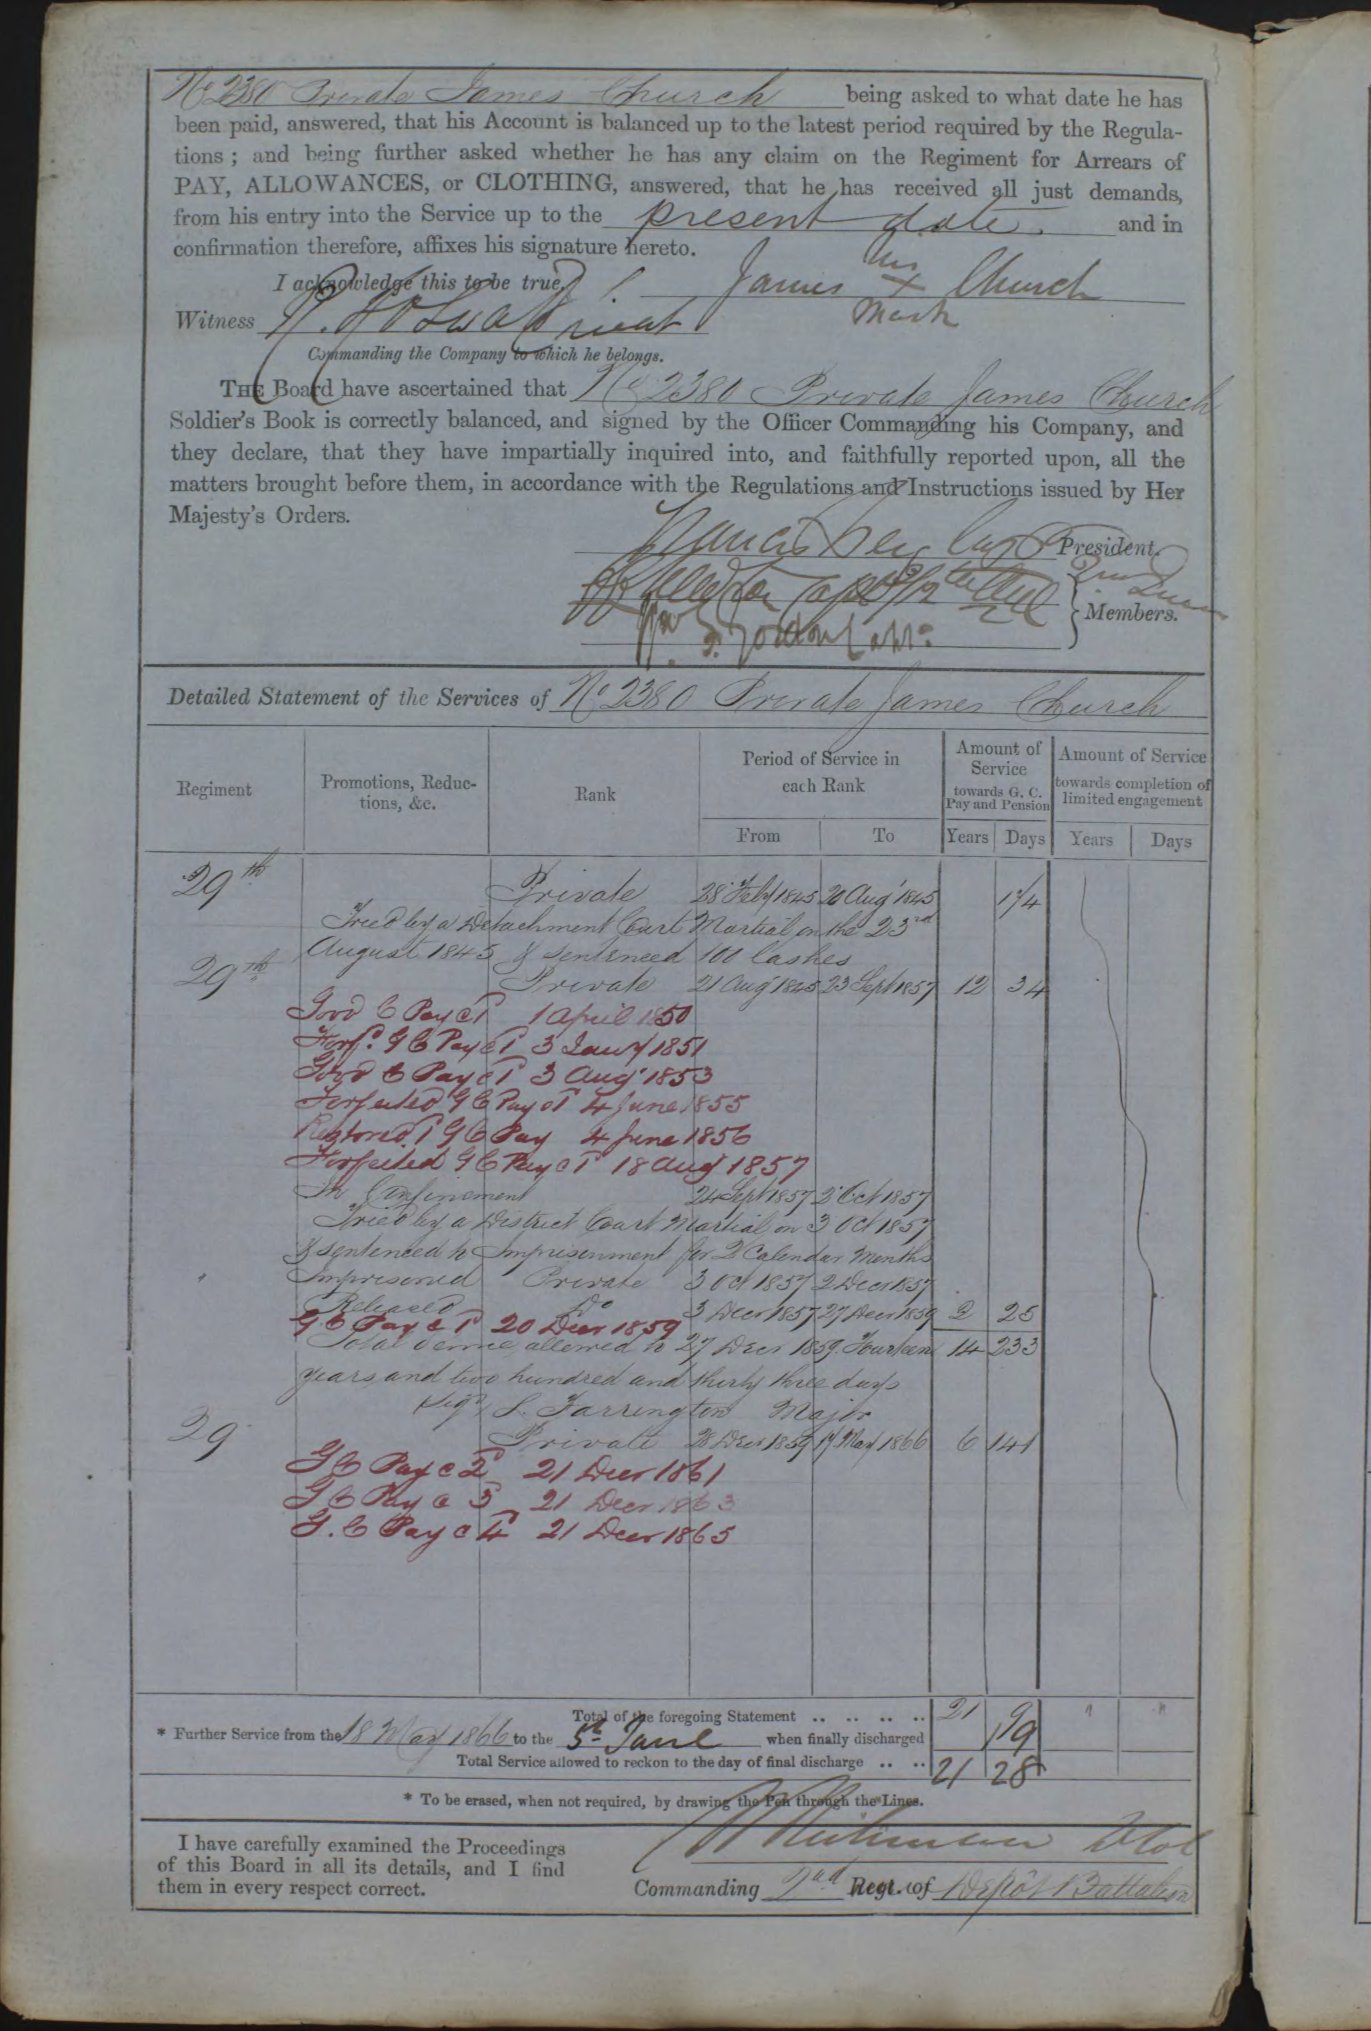 No 2380 Private James Church being asked to what date he has
been paid, answered, that his Account is balanced up to the latest period required by the Regula-
tions ; and being further asked whether he has any claim on the Regiment for Arrears of
PAY, ALLOWANCES, or CLOTHING, answered, that he has received all just demands,
from his entry into the Service up to the present date. and in
confirmation therefore, affixes his signature hereto.
I acknowledge this to be true, James his x Church
mark
Witness
Commanding the Company to which he belongs.
THE Board have ascertained that No 2380 Private James Church
Soldier's Book is correctly balanced, and signed by the Officer Commanding his Company, and
they declare, that they have impartially inquired into, and faithfully reported upon, all the
matters brought before them, in accordance with the Regulations and Instructions issued by Her
Majesty's Orders.
President.
Members.
Detailed Statement of the Services of No 2380 Private James Church
Regiment
Promotions, Reduc-
tions, &c.
Rank
Period of Service in
each Rank
From To
Amount of
Service
towards G. C.
Pay and Pension
Years Days
Amount of Service
towards completion of
limited engagement
Years Days
29th Private 28 Feby 1845 20 Aug 1845 174
Tried by a Detachment Court Martial on the 23rd
August 1845 & sentenced 100 lashes
29th Private 21 Aug 1845 23 Sept 1857 12 34
Good C Pay @ 1 1 April 1850
Forfd. G C Pay @ 1 3 Jany 1851
Good C Pay @ 1 3 Aug 1853
Forfeited G C Pay @ 1 4 June 1855
Restored 1 G C Pay 4 June 1856
Forfeited G C Pay @ 1 18 Aug 1857
In Confinement 24 Sept 1857 2 Oct 1857
Tried by a District Court Martial on 3 Oct 1857
& sentenced to Imprisonment for 2 Calendar Months
Imprisoned Private 3 Oct 1857 2 Decr 1857
Released Do 3 Decr 1857 27 Decr 1859 2 25
G C Pay @ 1 20 Decr 1859
Total Service allowed to 27 Decr 1859. Fourteen 14 233
years and two hundred and thirty three days
Sigd, S. Farrington Major
29 Private 28 Decr 1859 17 May 1866 6 141
G C Pay @ 2 21 Decr 1861
G C Pay @ 3 21 Decr 1863
G. C Pay @ 4 21 Decr 1865
Total of the foregoing Statement .. .. .. .. 21 9
* Further Service from the 18 May 1866 to the 5th June when finally discharged 19
Total Service allowed to reckon to the day of final discharge .. .. 21 28
* To be erased, when not required, by drawing the Pen through the Lines.
I have carefully examined the Proceedings
of this Board in all its details, and I find
them in every respect correct.
Commanding 2nd Regt. of Depôt Battalion